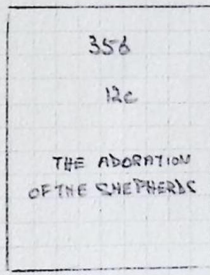 356
12c
THE ADORATION
OF THE SHEPHERDS